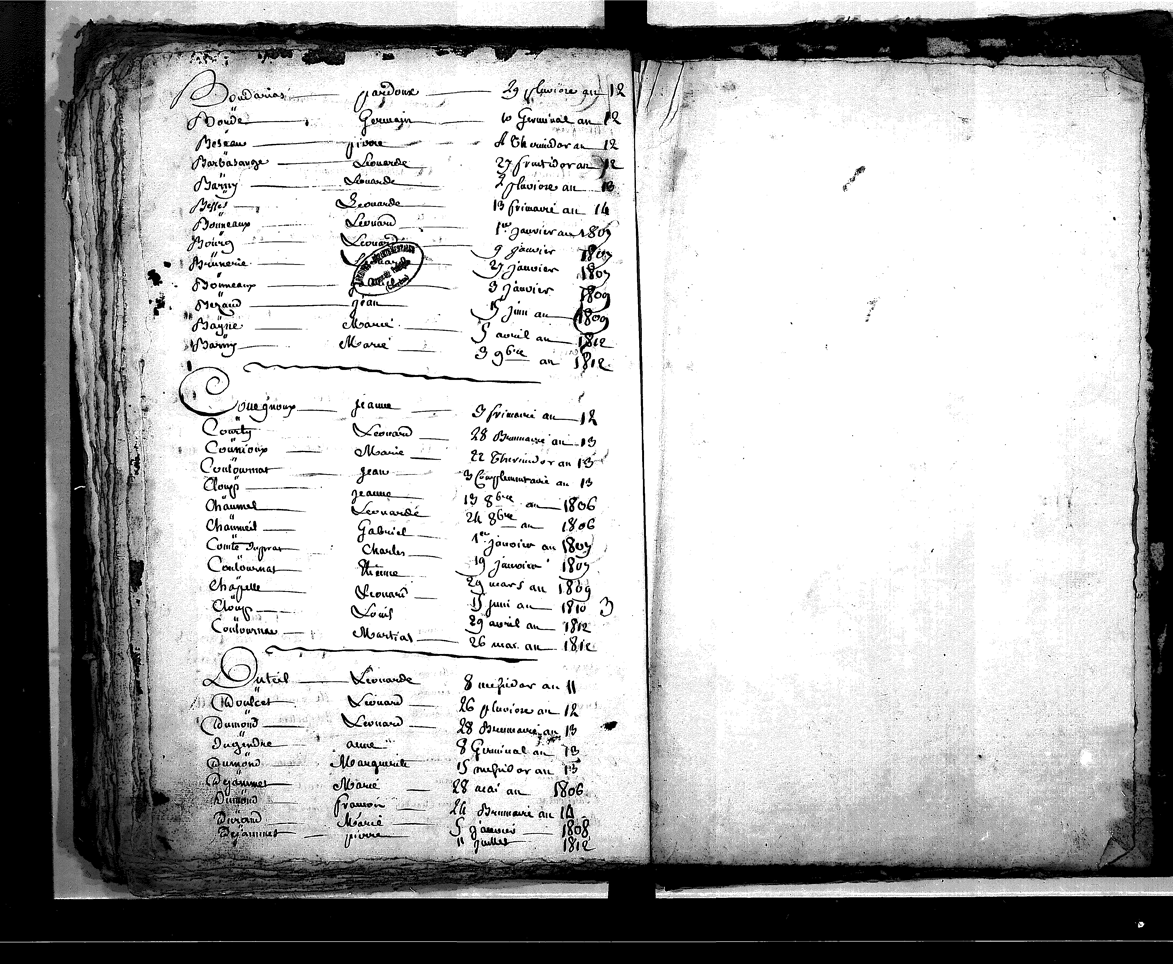 Boudarias pardoux 29 pluviose an 12
Bonde Germain 10 Germinal an 12
Beseau pierre Thermidor an 12
Barbasange Léonarde 27 fructidor an 12
Barny Léonarde 2 pluviose an 13
Besses Léonarde 13 frimaire an 14
Bonneaux Léonard 1er Janvier an 1807
Bourg Léonard 9 janvier 1807
Brunerie 27 janvier 1807
Bonneaux 3 janvier 1809
Beraud jean 15 juin an 1809
Bayne Marie 5 avril an 1812
Barny Marie 3 9bre an 1812
Couegnoux jeanne 3 frimaire an 12
Courty Léonard 28 Brumaire an 13
Counioux Marie 22 Thermidor an 13
Coutournat jean 3 Complementaire an 13
Cloup jeanne 13 8bre an 1806
Chaumel Léonarde 24 8bre an 1806
Chaumeil Gabriel 1er janvier an 1807
Comte Duprat Charles 19 janvier 1807
Coutournat Etienne 29 mars an 1809
Chapelle Léonard 11 juin an 1810 3
Cloup Louis 29 avril an 1812
Coutournat Martial 26 mai an 1812
Duteil Léonarde 8 messidor an 11
Doulcet Léonard 26 pluviose an 12
Dumond Léonard 28 Brumaire an 13
Dugendre anne 8 Germinal an 13
Dumond Marguerite 15 messidor an 13
Dejammet Marie 28 mai an 1806
Dumond francois 24 Brumaire an 14
Durand Marie 5 janvier 1808
Dejammet pierre 11 juillet 1812